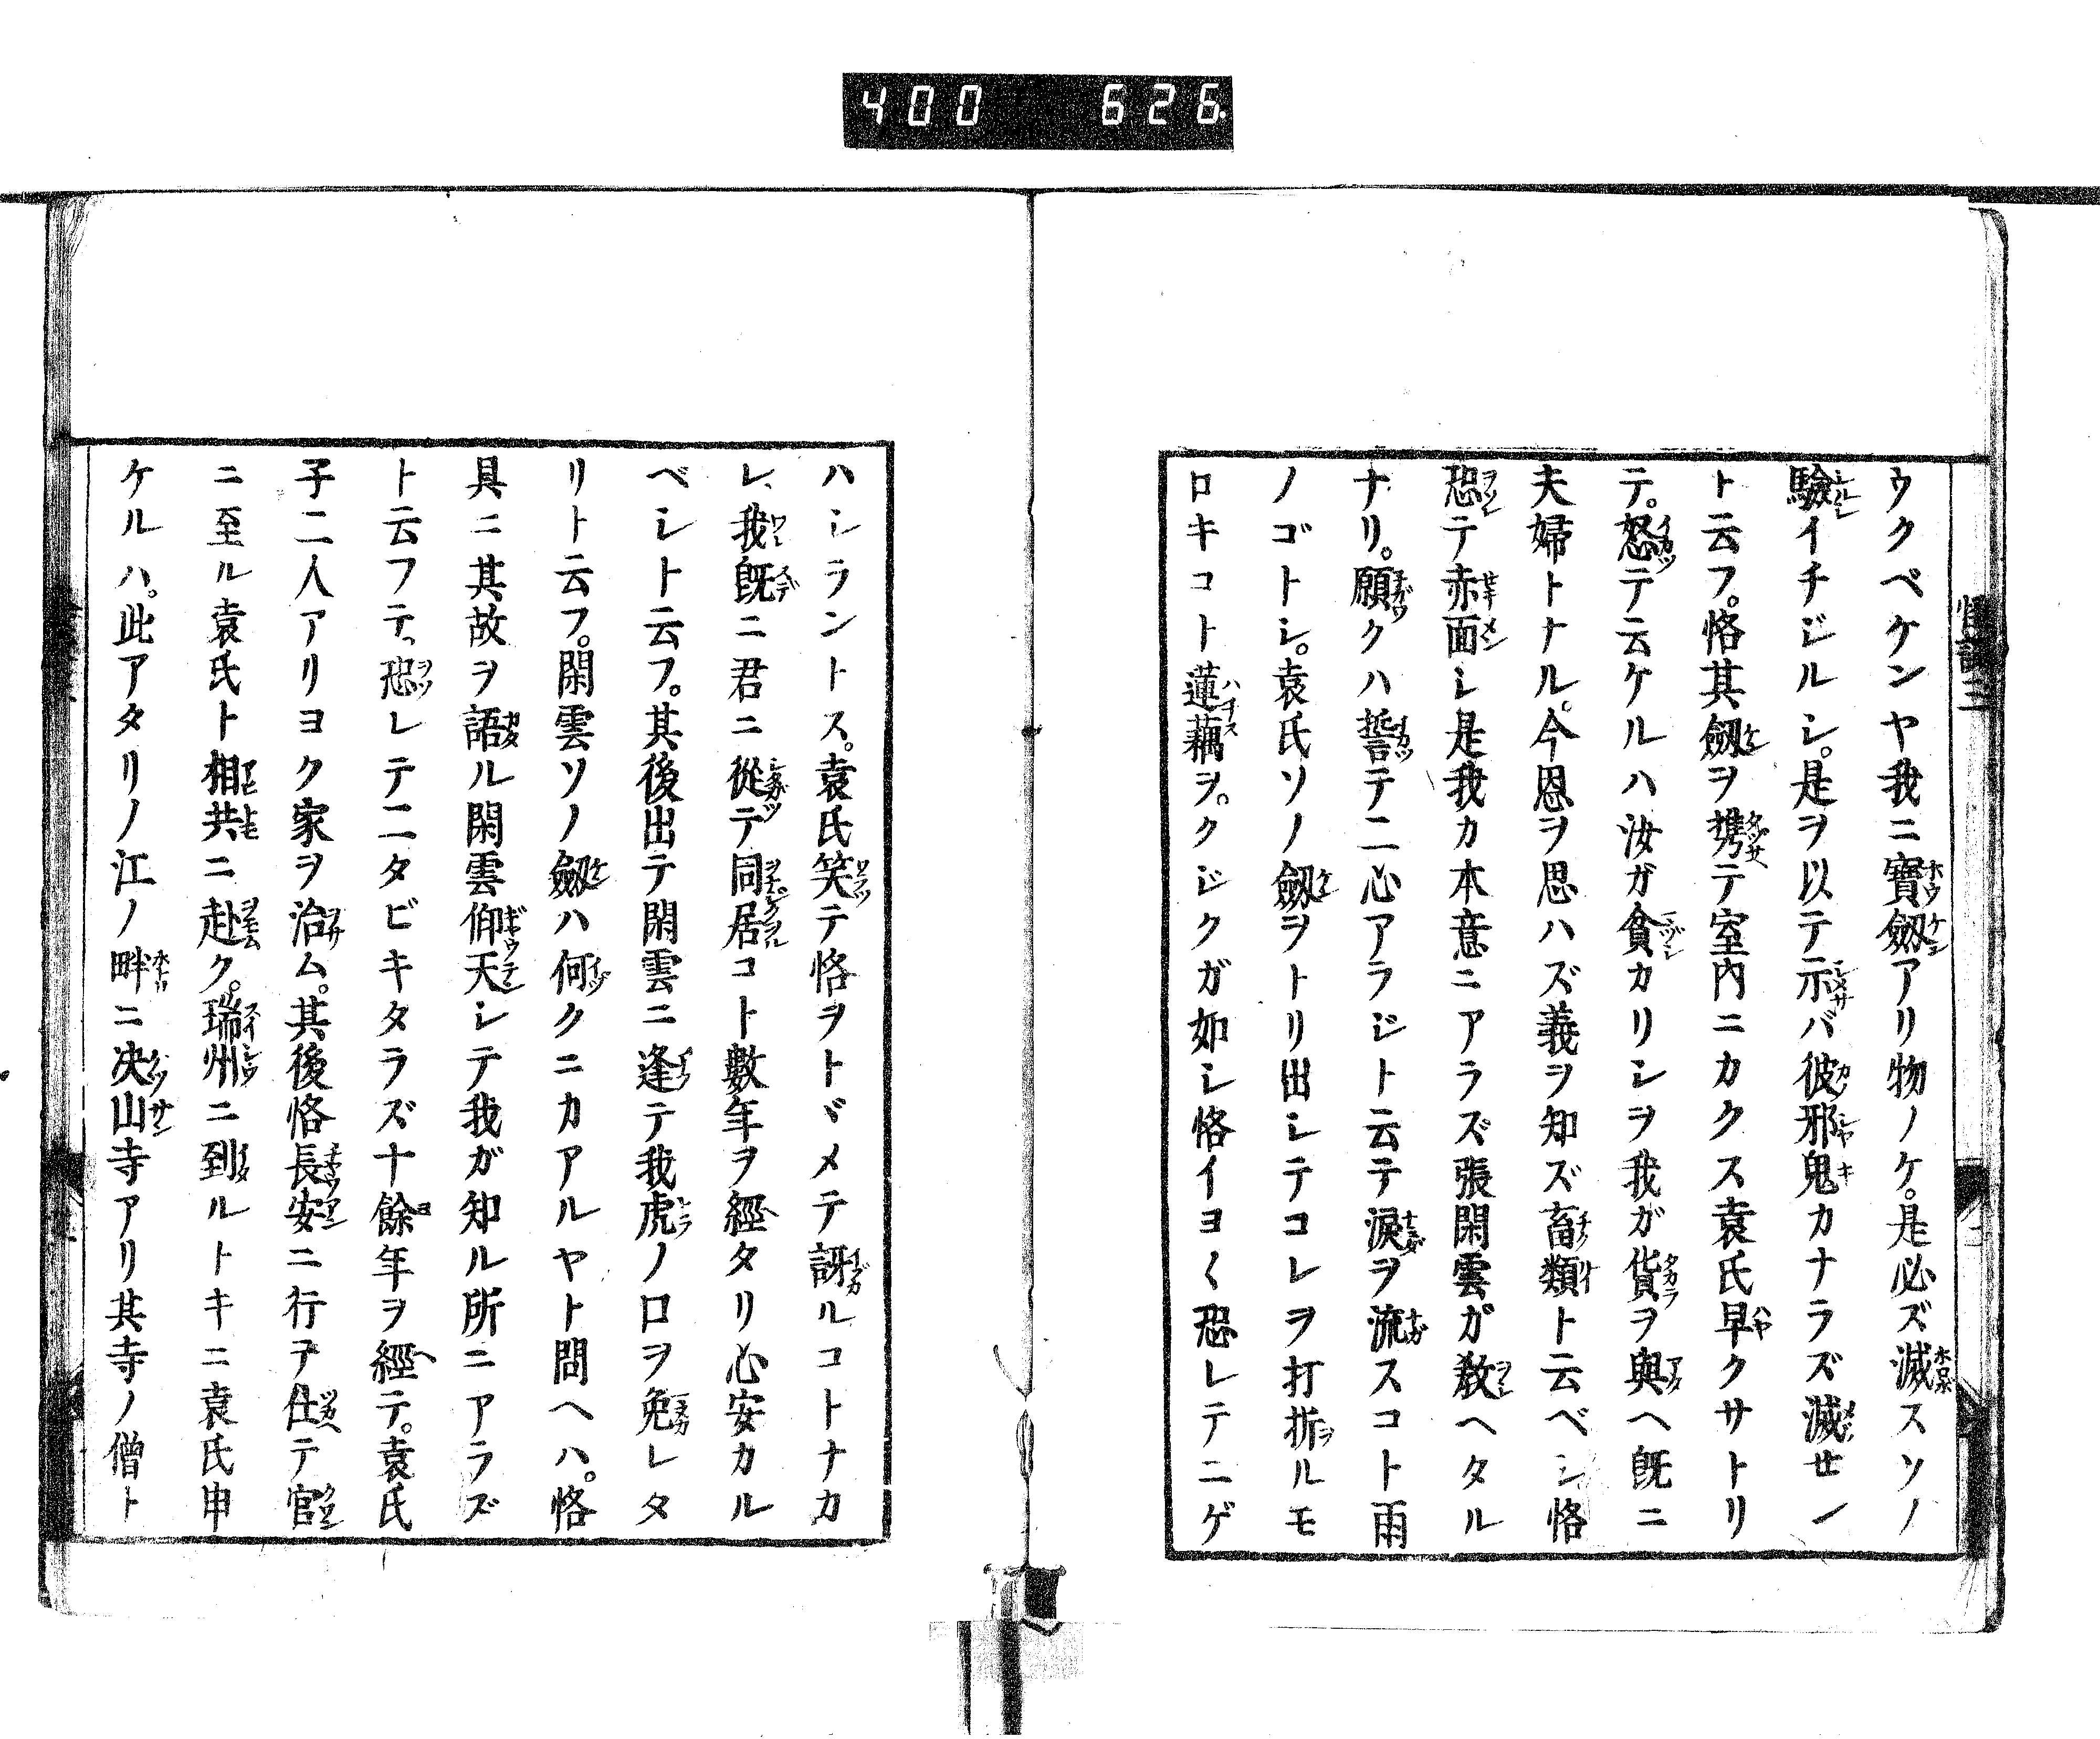 400 626
怪談三
ウクベケンヤ我ニ寳劔アリ物ノケ。是必ズ滅スソノ
驗イチジルシ。是ヲ以テ示バ彼邪鬼カナラズ滅せン
ト云フ。恪其劔ヲ携テ室内ニカクス袁氏早クサトリ
テ。怒テ云ケルハ汝ガ貧カリシヲ我ガ貨ヲ與ヘ既ニ
夫婦トナル。今恩ヲ思ハズ義ヲ知ズ畜類ト云ベシ恪
恐テ赤面シ是我カ本意ニアラズ張閑雲ガ敎ヘタル
ナリ。願クハ誓テ二心アラジト云テ淚ヲ流スコト雨
ノゴトシ。袁氏ソノ劔ヲトリ出シテコレヲ打折ルモ
ロキコト蓮藕ヲ。クジクガ如シ恪イヨ〱恐レテニゲ
ハシラントス。袁氏笑テ恪ヲトヾメテ訝ルコトナカ
レ、我既ニ君ニ從テ同居コト數年ヲ經タリ心安カル
ベシト云フ。其後出テ閑雲ニ逢テ我虎ノ口ヲ免レタ
リト云フ。閑雲ソノ劔ハ何クニカアルヤト問ヘハ。恪
具ニ其故ヲ語ル閑雲仰天シテ我ガ知ル所ニアラズ
ト云フテ、恐レテ二タビキタラズ十餘年ヲ經テ。袁氏
子二人アリヨク家ヲ治ム。其後恪長安ニ行テ仕テ官
ニ至ル袁氏ト相共ニ赴ク。瑞州ニ到ルトキニ袁氏申
ケルハ。此アタリノ江ノ畔ニ決山寺アリ其寺ノ僧ト